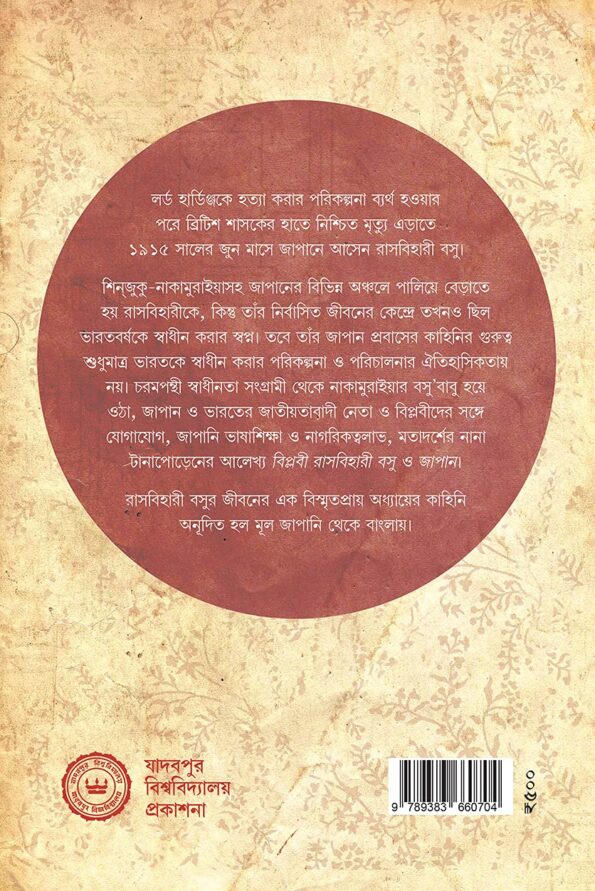 লর্ড হার্ডিঞ্জকে হত্যা করার পরিকল্পনা ব্যর্থ হওয়ার
পরে ব্রিটিশ শাসকের হাতে নিশ্চিত মৃত্যু এড়াতে
১৯১৫ সালের জুন মাসে জাপানে আসেন রাসবিহারী বসু।
শিন্‌জুকু-নাকামুরাইয়াসহ জাপানের বিভিন্ন অঞ্চলে পালিয়ে বেড়াতে
হয় রাসবিহারীকে, কিন্তু তাঁর নির্বাসিত জীবনের কেন্দ্রে তখনও ছিল
ভারতবর্ষকে স্বাধীন করার স্বপ্ন। তবে তাঁর জাপান প্রবাসের কাহিনির গুরুত্ব
শুধুমাত্র ভারতকে স্বাধীন করার পরিকল্পনা ও পরিচালনার ঐতিহাসিকতায়
নয়। চরমপন্থী স্বাধীনতা সংগ্রামী থেকে নাকামুরাইয়ার বসু'বাবু হয়ে
ওঠা, জাপান ও ভারতের জাতীয়তাবাদী নেতা ও বিপ্লবীদের সঙ্গে
যোগাযোগ, জাপানি ভাষাশিক্ষা ও নাগরিকত্বলাভ, মতাদর্শের নানা
টানাপোড়েনের আলেখ্য বিপ্লবী রাসবিহারী বসু ও জাপান।
রাসবিহারী বসুর জীবনের এক বিস্মৃতপ্রায় অধ্যায়ের কাহিনি
অনূদিত হল মূল জাপানি থেকে বাংলায়।
যাদবপুর বিশ্ববিদ্যালয়
যাদবপুর বিশ্ববিদ্যালয়
যাদবপুর
বিশ্ববিদ্যালয়
প্রকাশনা
9 789383 660704
₹৫০০